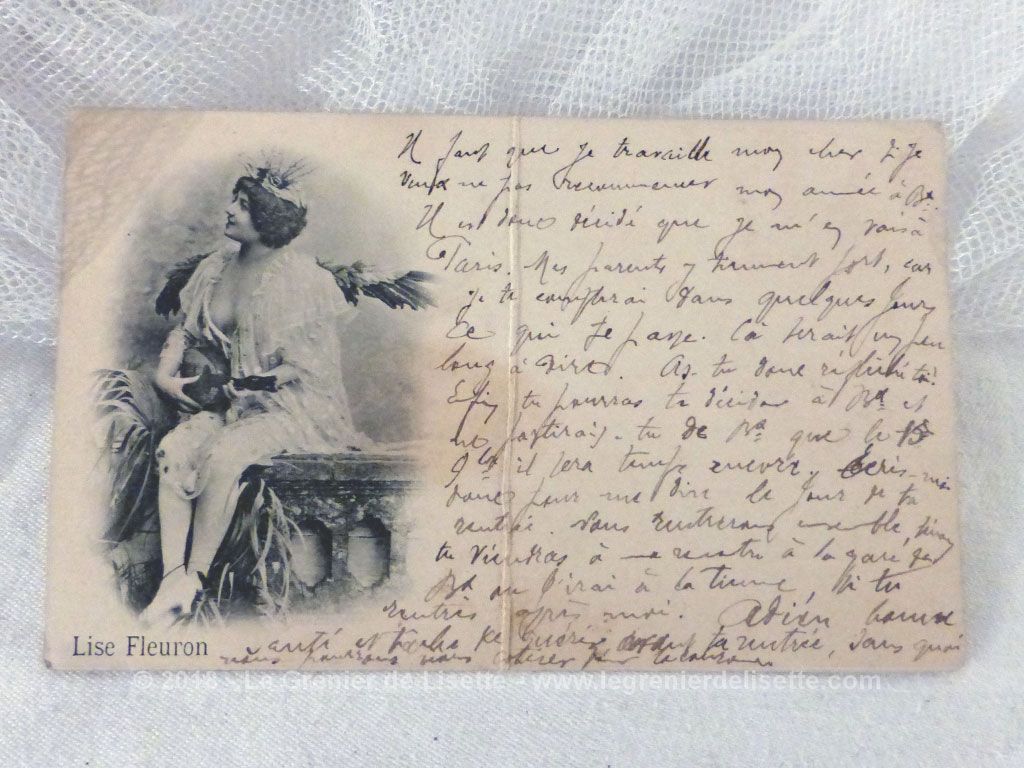 Il faut que je travaille mon cher si je
veux ne pas recommencer mon année à Bx.
Il est donc décidé que je m'en vais à
Paris. Mes parents y tiennent fort, car
je te compterai dans quelques jours
ce qui se passe. Ça serait un peu
long à dire. As-tu donc réfléchi toi.
Enfin tu pourras te décider à Bx et
ne partirais-tu de Bx que le 15
il sera temps encore. Ecris-moi
donc pour me dire le jour de ta
rentrée. Nous rentrerons ensemble, sinon
tu viendras à ma rencontre à la gare de
Bx ou j'irai à la tienne, si tu
rentres après moi. Adieu bonne
santé et tâche de guérir avant ta rentrée, sans quoi
nous pourrons nous
Lise Fleuron
© 2018 - Le Grenier de Lisette - www.legrenierdelisette.com